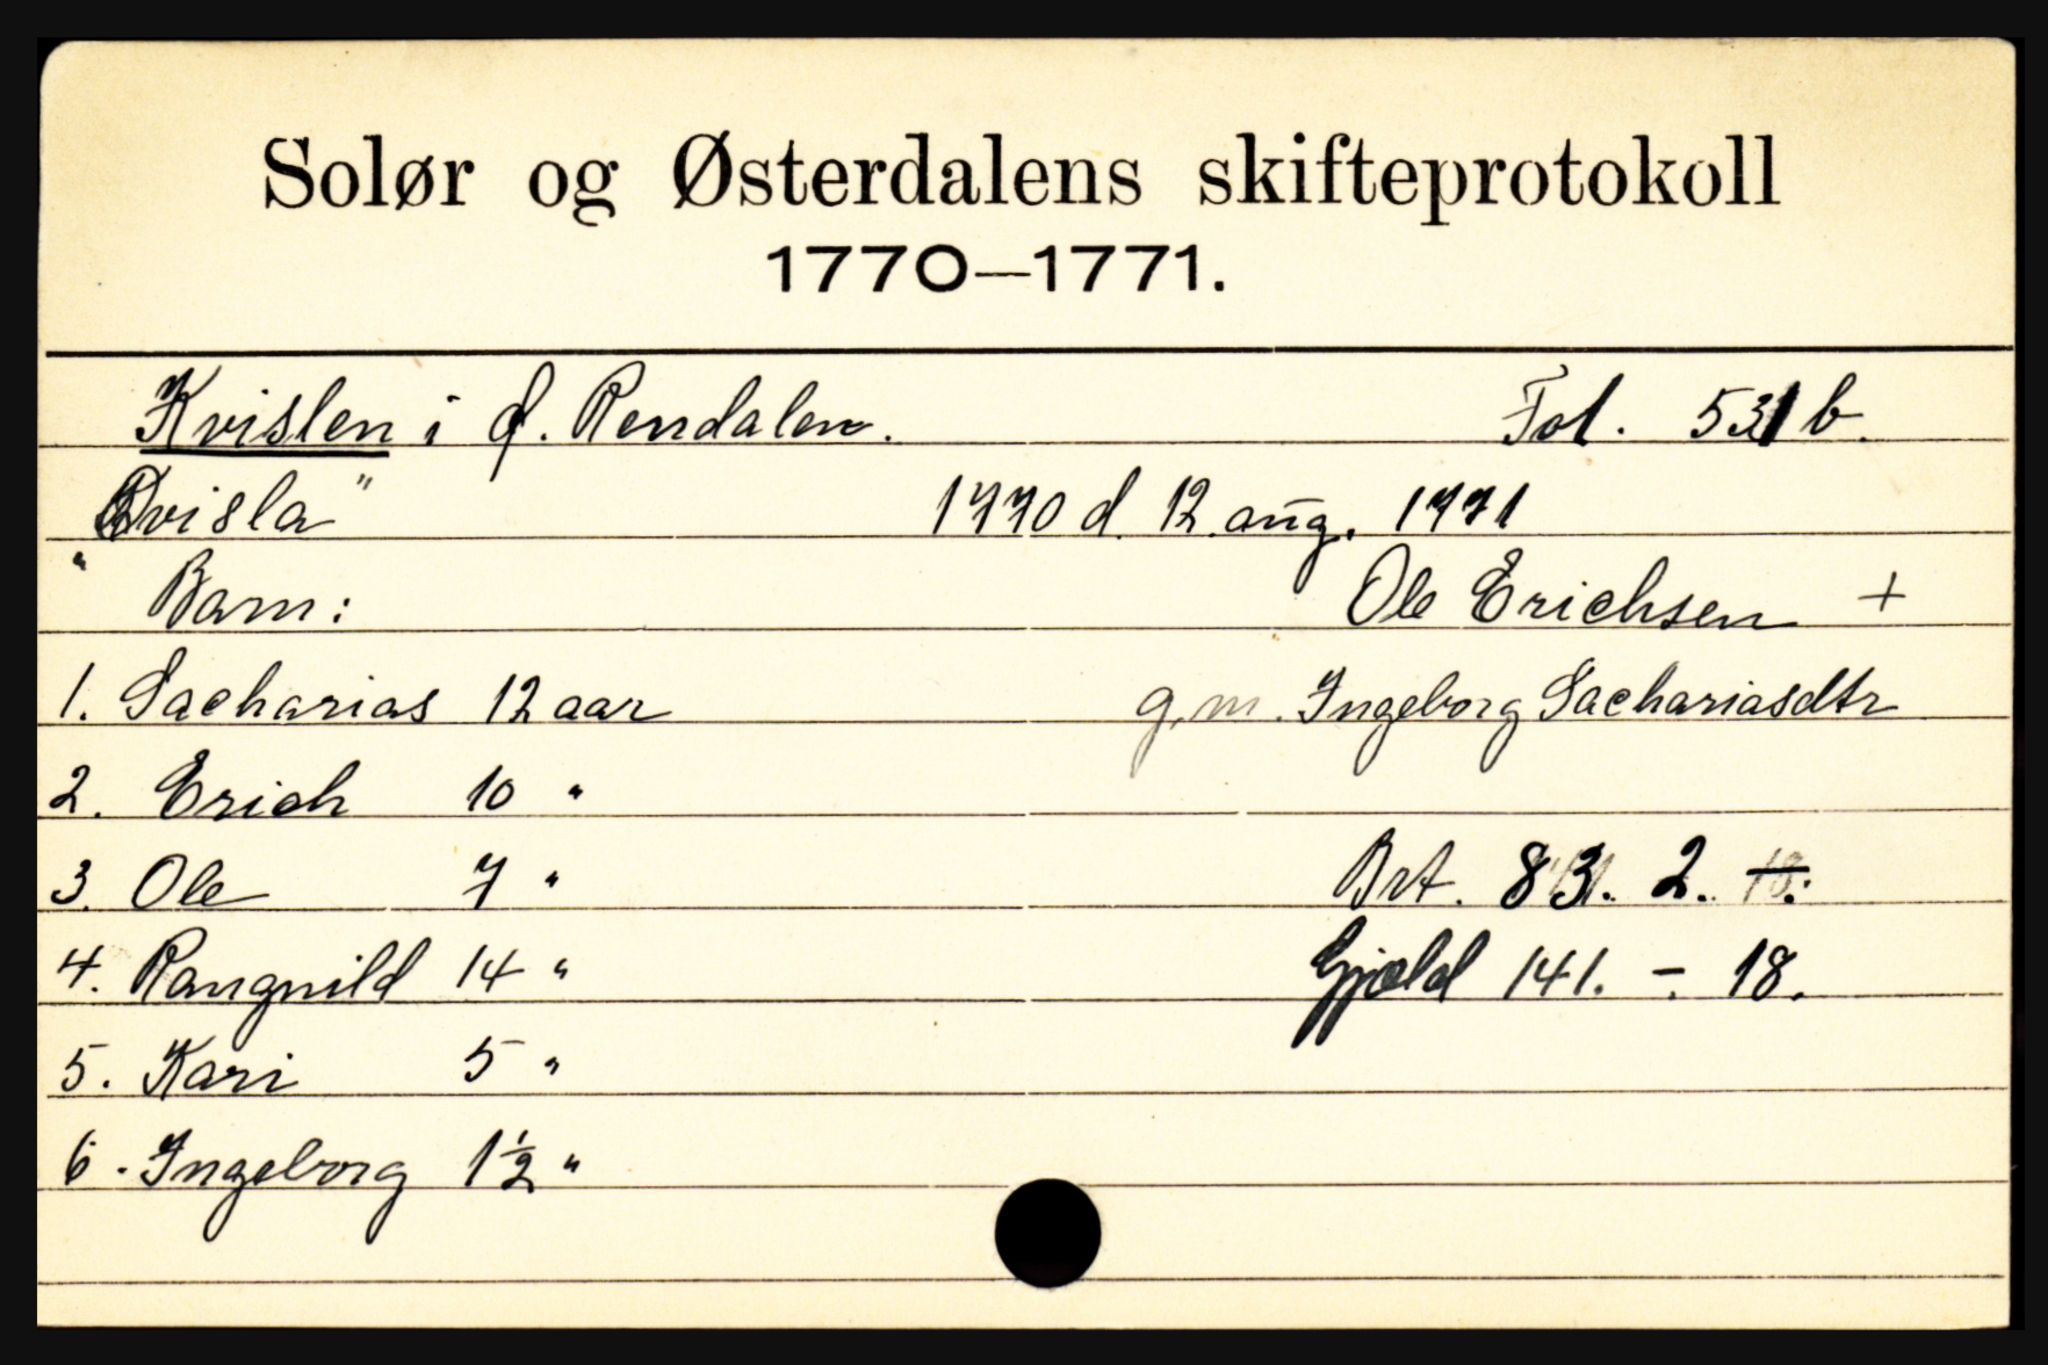 Solør og Østerdalens skifteprotokoll
1770—1771.
Kvislen i Ø. Rendalen. Fol. 531 b.
"Qvisla" 1770 d. 12. aug. 1771
Barn: Ole Erichsen +
1. Sacharias 12 aar g.m. Ingeborg Sachariasdtr
2. Erich 10 "
3. Ole 7 " Brt. 83. 2. 18.
4. Rangnild 14 " Gjæld 141. –. 18.
5. Kari 5 "
6. Ingeborg 1½ "